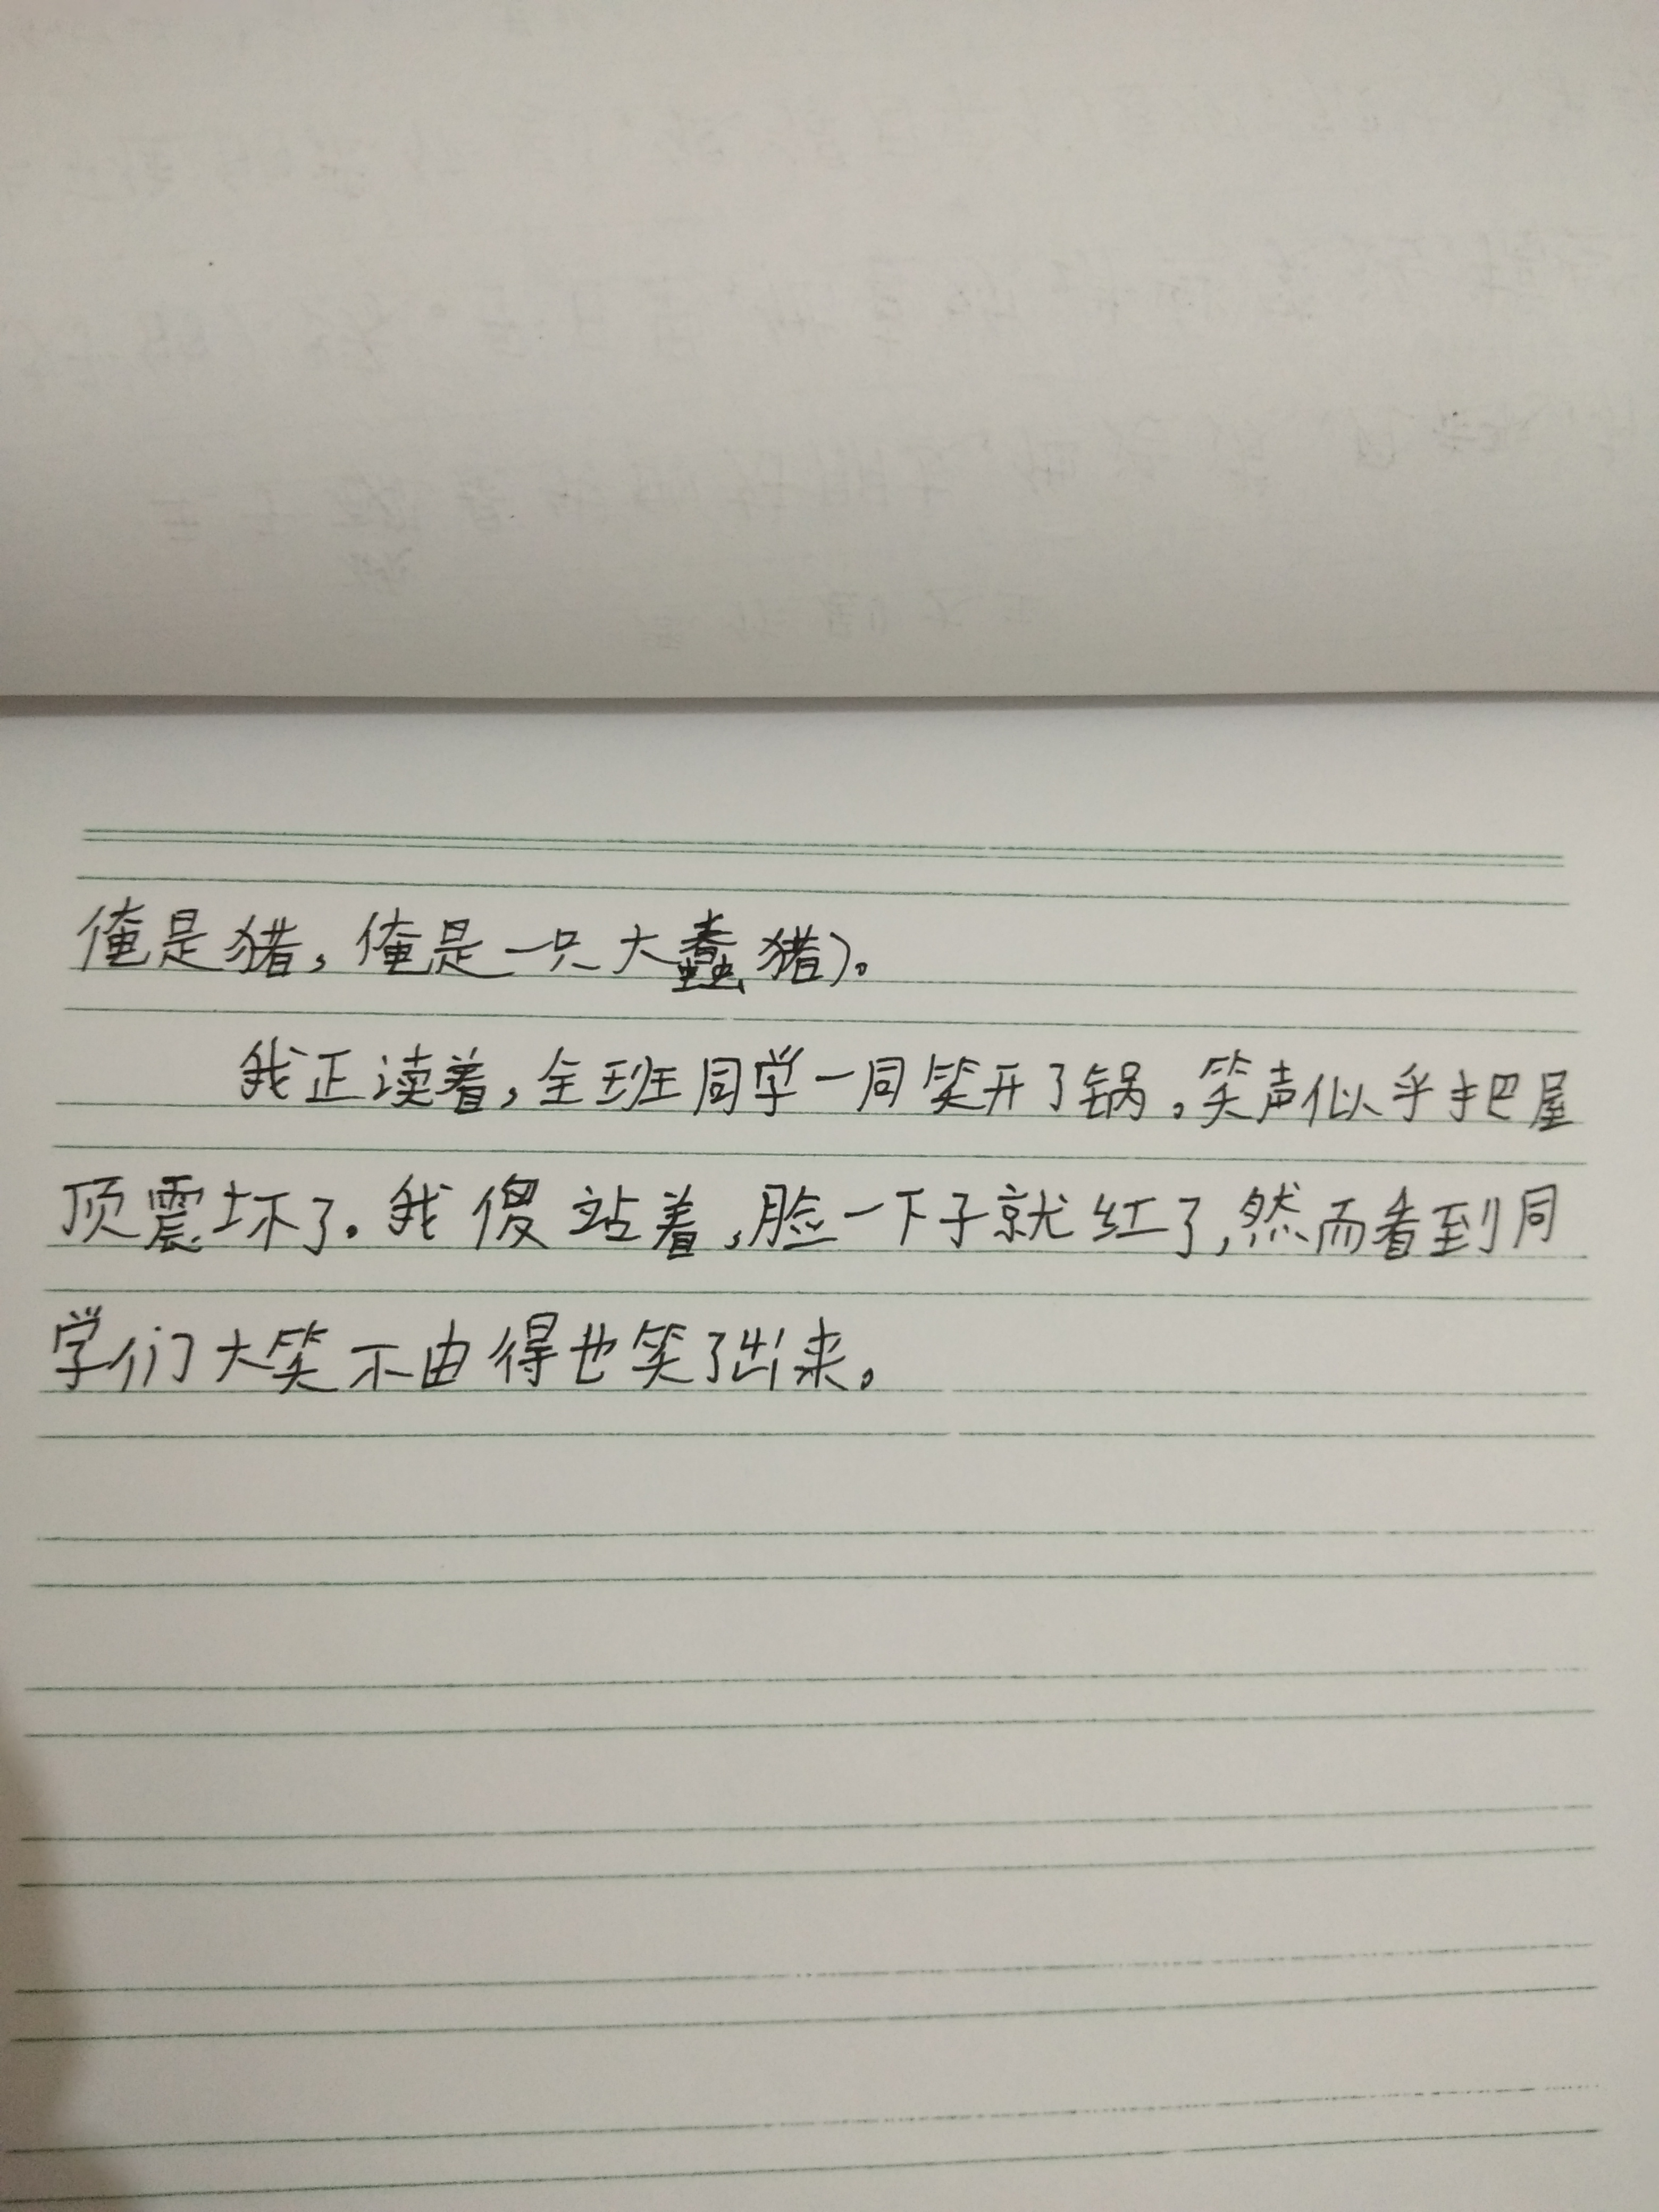 俺是猪，俺是一只大蠢猪）。
我正读着，全班同学一同笑开了锅。笑声似乎把屋
顶震坏了。我傻站着，脸一下子就红了，然而看到同
学们大笑不由得也笑了出来。